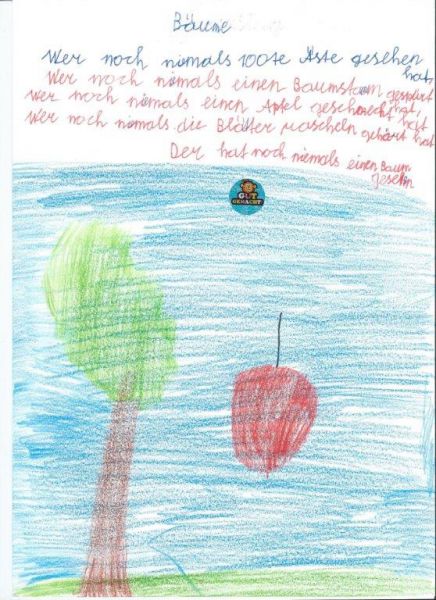 Bäume
Wer noch niemals 100te Äste gesehen
hat,
Wer noch niemals einen Baumstam gespürt
Wer noch niemals einen Apfel geschmeckt hat,
Wer noch niemals die Blätter rascheln gehört hat
Der hat noch niemals einen Baum
gesehn
GUT
GEMACHT